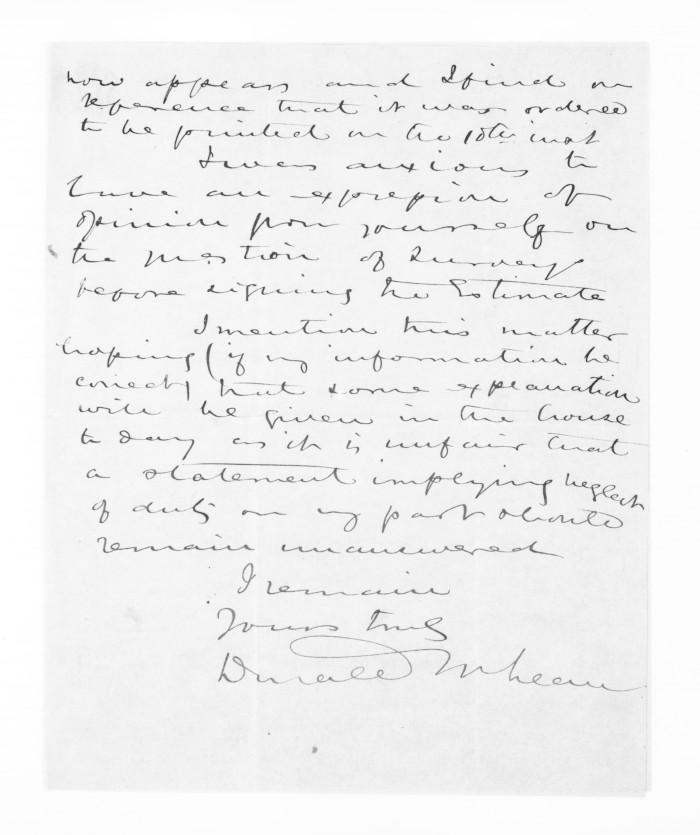 now appears and I find on
reference that it was ordered
to be printed on the 10th inst
I was anxious to
have an expression of
opinion from yourself on
the question of Surveys
before signing the Estimate
I mention this matter
hoping (if my information be
correct) that some explanation
will be given in the House
to day as it is unfair that
a statement implying neglect
of duty on my part should
remain unanswered
I remain
Yours truly
Donald McLean